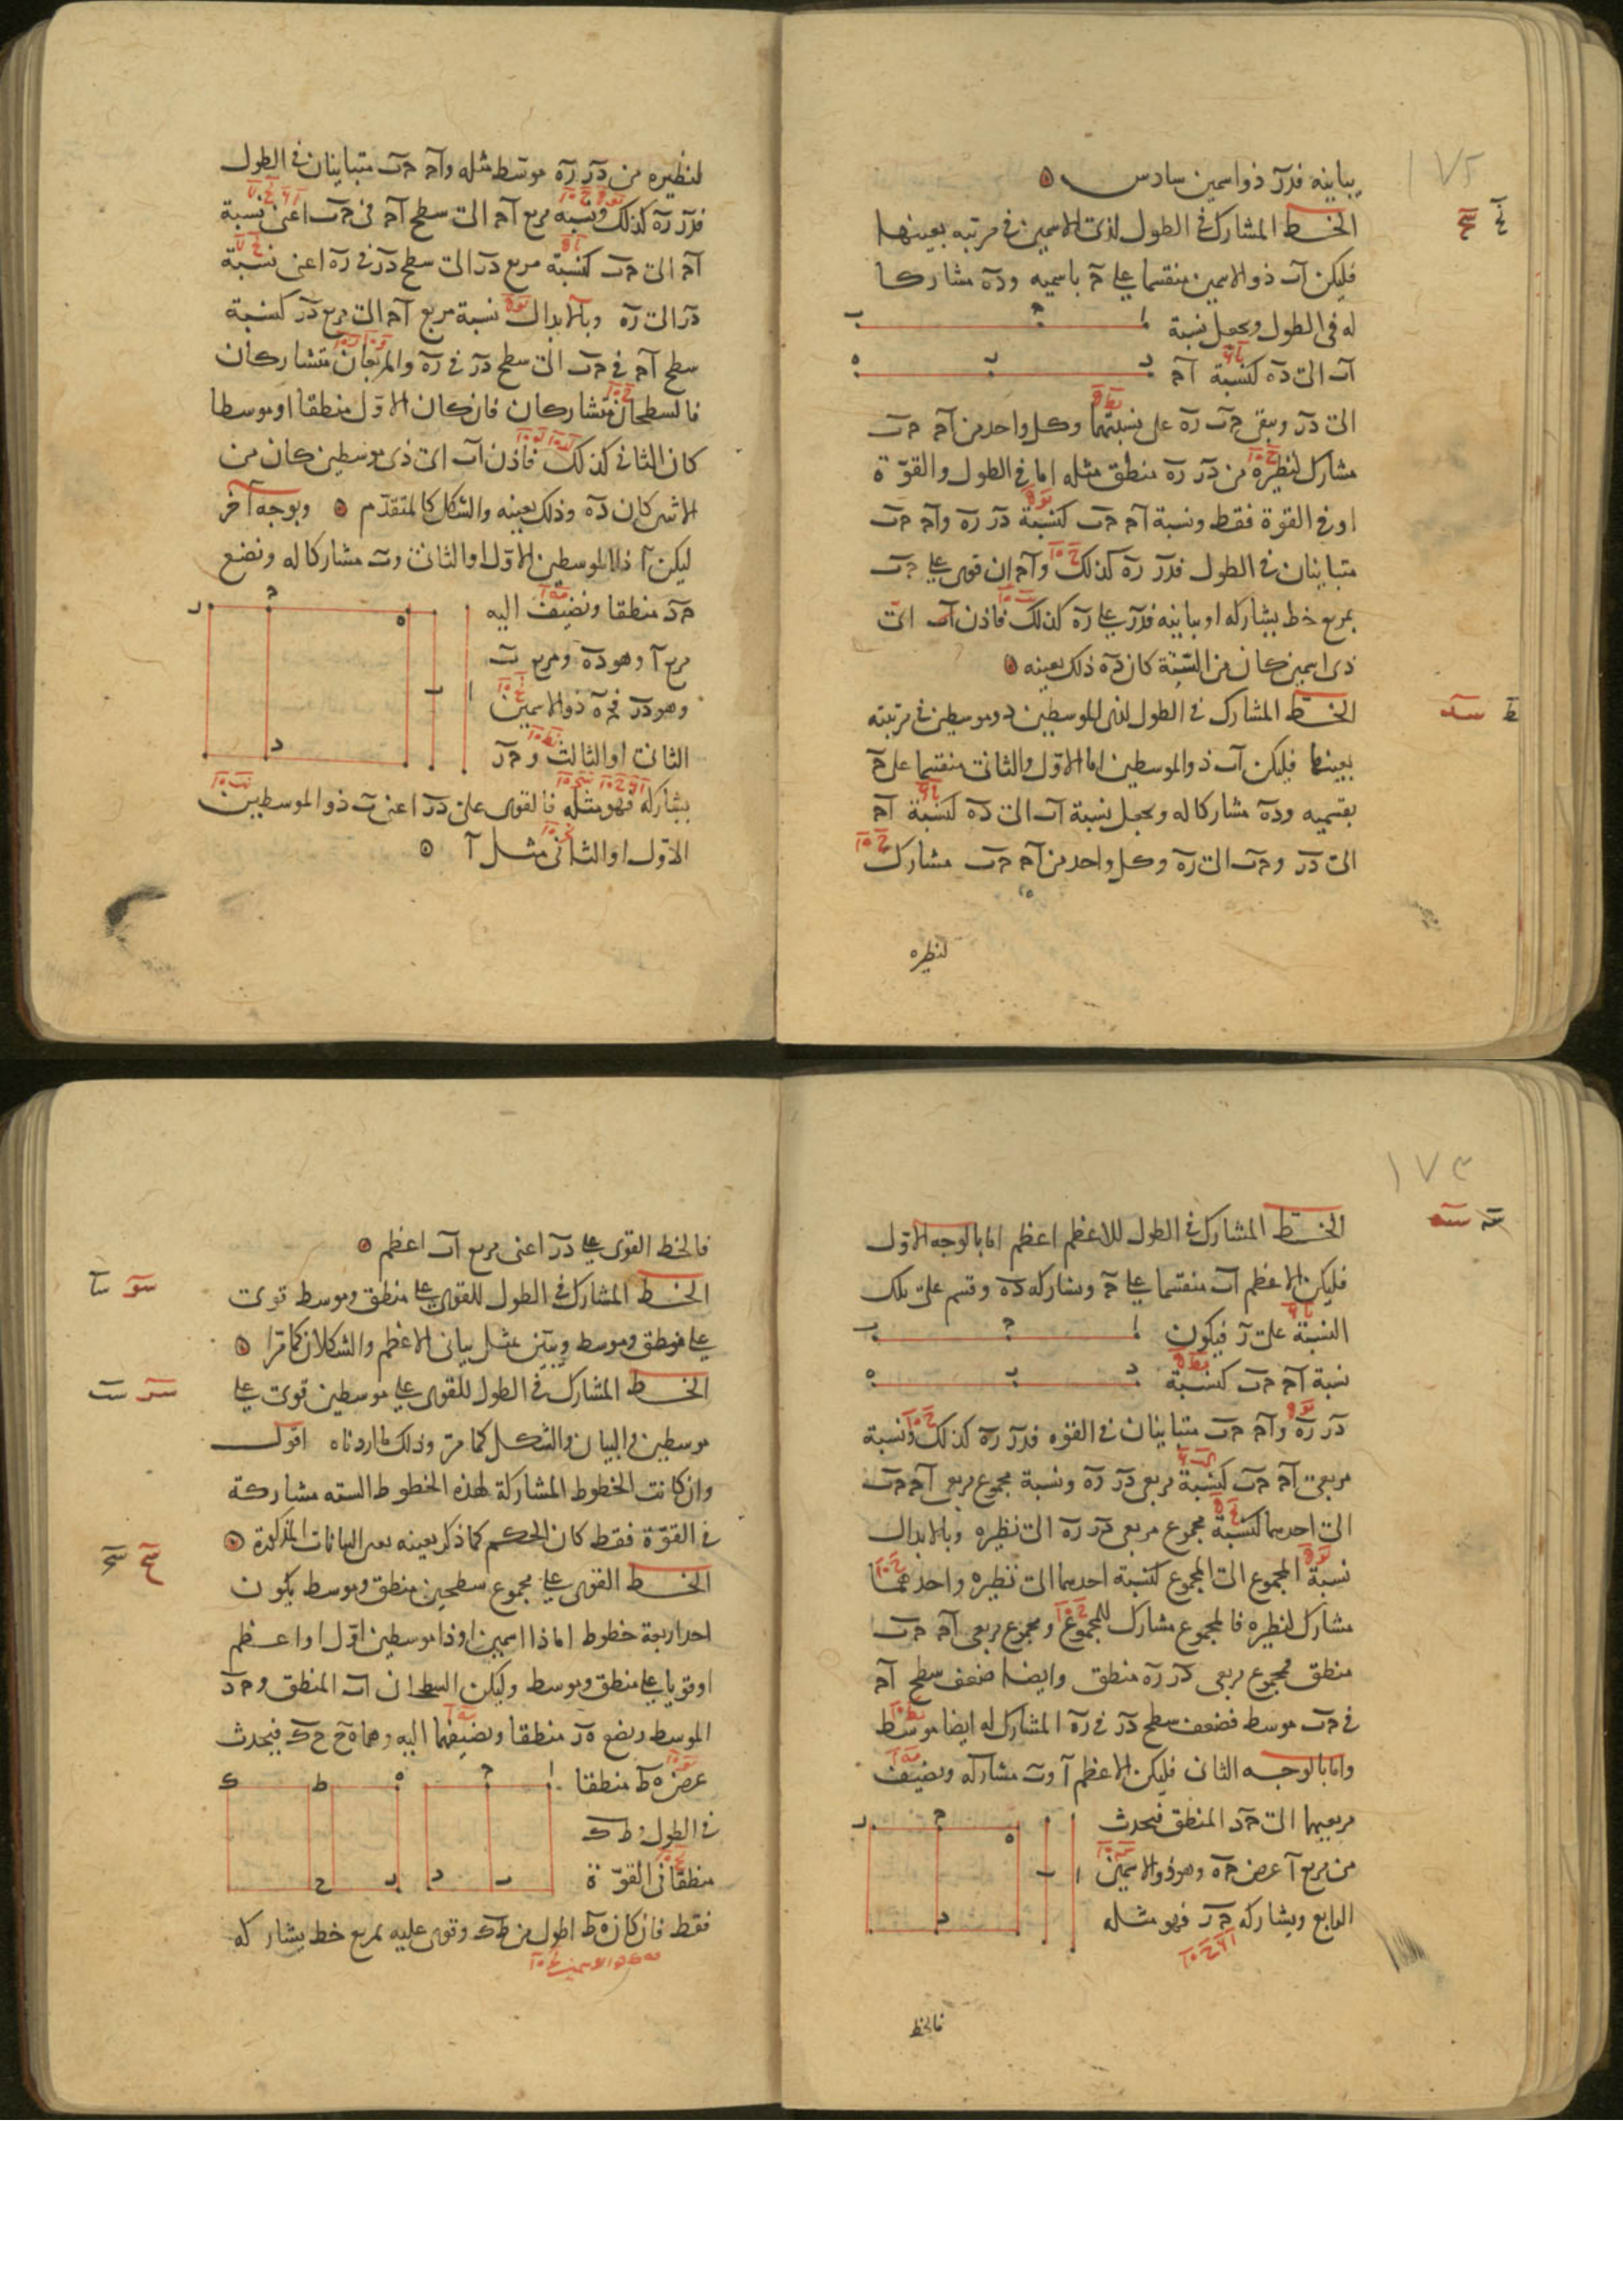 ١٧٢
يباينه فدر ذو اسمين سادس
الخط المشارك في الطول لذي الاسمين في مرتبته بعينها
فليكن آب ذو الاسمين منقسما على حـ باسميه و ده مشاركا
له في الطول ونجعل نسبة
آب الى ده كنسبة آحـ
الى در ويبقى حـب ره على نسبتهما وكل واحد من آحـ حـب
مشارك لنظيره من در ره منطق مثله اما في الطول والقوة
او في القوة فقط ونسبة آحـ حـب كنسبة در ره و آحـ حـب
متباينان في الطول فدر ره كذلك و آحـ ان قوى على حـب
بمربع خط يشاركه او يباينه فدر على ره كذلك فاذن آب اى
ذى اسمين كان من الستة كان ده ذلك بعينه
الخط المشارك في الطول لذى الموسطين ذو موسطين في مرتبته
بعينها فليكن آب ذو الموسطين اما الاول والثاني منقسما على حـ
بقسميه و ده مشاركا له ونجعل نسبة آب الى ده كنسبة آحـ
الى در و حـب الى ره وكل واحد من آحـ حـب مشارك
لنظيره
لنظيره من در ره موسط مثله و آحـ حـب متباينان في الطول
فدر ره كذلك ونسبة مربع آحـ الى سطح آحـ في حـب اعنى نسبة
آحـ الى حـب كنسبة مربع در الى سطح در في ره اعنى نسبة
در الى ره وبالابدال نسبة مربع آحـ الى مربع در كنسبة
سطح آحـ في حـب الى سطح در في ره والمربعان متشاركان
فالسطحان متشاركان فان كان الاول منطقا او موسطا
كان الثاني كذلك فاذن آب اى ذى موسطين كان من
الاثنين كان ده وذلك بعينه والشكل كالمتقدم وبوجه آخر
ليكن آ ذا الموسطين الاول او الثاني و ب مشاركا له ونضع
حـد منطقا ونضيف اليه
مربع آ وهو ده ومربع ب
وهو در فحـه ذو الاسمين
الثاني او الثالث و حـر
يشاركه فهو مثله فالقوى على در اعنى ب ذو الموسطين
الاول او الثاني مثل آ
١٧٣
الخط المشارك في الطول للاعظم اعظم اما بالوجه الاول
فليكن الاعظم آب منقسما على حـ ومشاركه ده وقسم على تلك
النسبة على ر فيكون
نسبة آحـ حـب كنسبة
در ره و آحـ حـب متباينان في القوه فدر ره كذلك ونسبة
مربعي آحـ حـب كنسبة مربعي در ره ونسبة مجموع مربعي آحـ حـب
الى احدهما كنسبة مجموع مربعي در ره الى نظيره وبالابدال
نسبة المجموع الى المجموع كنسبة احدهما الى نظيره واحدهما
مشارك لنظيره فالمجموع مشارك للمجموع ومجموع مربعي آحـ حـب
منطق فمجموع مربعي در ره منطق وايضا ضعف سطح آحـ
في حـب موسط فضعف سطح در في ره المشارك له ايضا موسط
واما بالوجه الثاني فليكن الاعظم آ و ب مشاركه ونضيف
مربعيهما الى حـد المنطق فيحدث
من مربع آ عرض حـه وهو ذو الاسمين
الرابع ويشاركه حـر فهو مثله
فالخط
فالخط القوى على در اعنى مربع آب اعظم
الخط المشارك في الطول للقوى على منطق وموسط قوى
على منطق وموسط ويتبين بمثل بيانى الاعظم والشكلان كما مرا
الخط المشارك في الطول للقوى على موسطين قوى على
موسطين والبيان والشكل كما مر وذلك ما اردناه اقول
وان كانت الخطوط المشاركة لهذه الخطوط الستة مشاركة
في القوة فقط كان الحكم كما ذكر بعينه البيانات المذكورة
الخط القوى على مجموع سطحين منطق وموسط يكون
احد اربعة خطوط اما ذا اسمين او ذا موسطين اول او اعظم
او قويا على منطق وموسط وليكن السطحان آب المنطق و حـد
الموسط ونضع هر منطقا ونضيفهما اليه وهما هح حك فيحدث
عرض هط منطقا
في الطول و طك
منطقا في القوة
فقط فان كان هط اطول من طك وقوى عليه بمربع خط يشاركه